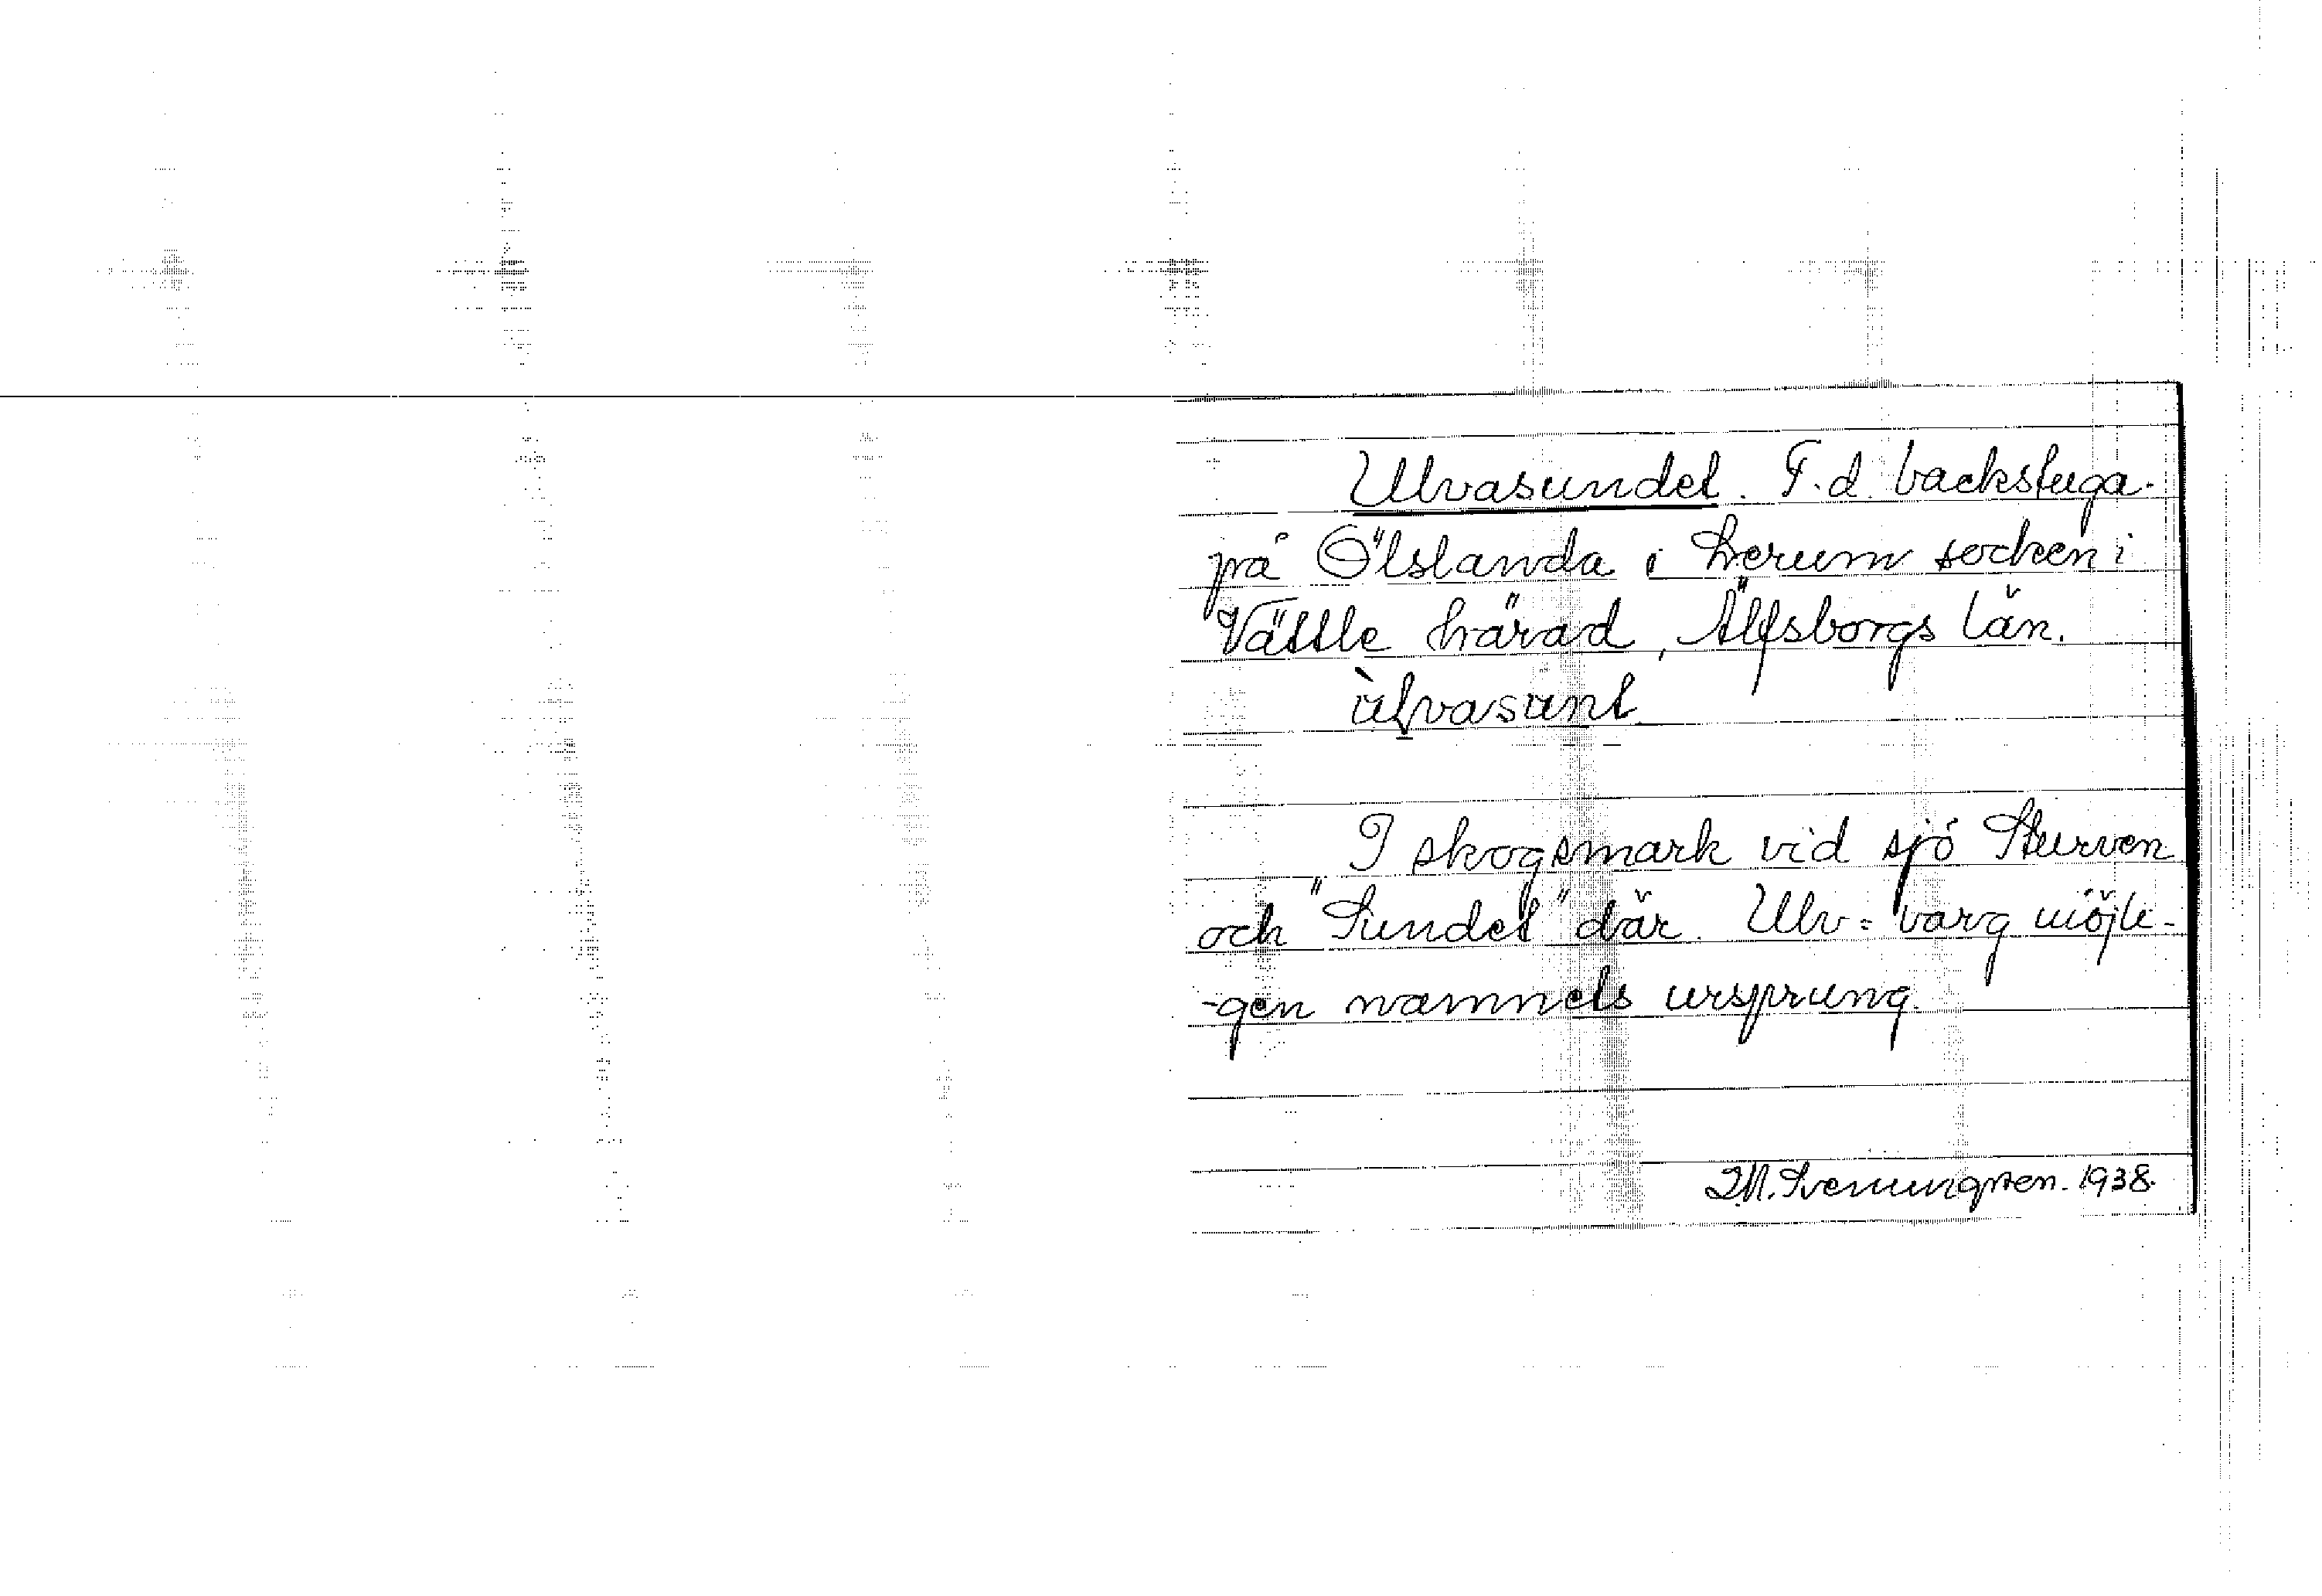 Ulvasundet. F.d. backstuga
på Ölslanda i Lerum socken i
Vättle härad, Älfsborgs län.
ùlvasunt
I skogsmark vid sjö Sturven
och "Sundet" där. Ulv = varg möjli-
-gen namnets ursprung.
1938.